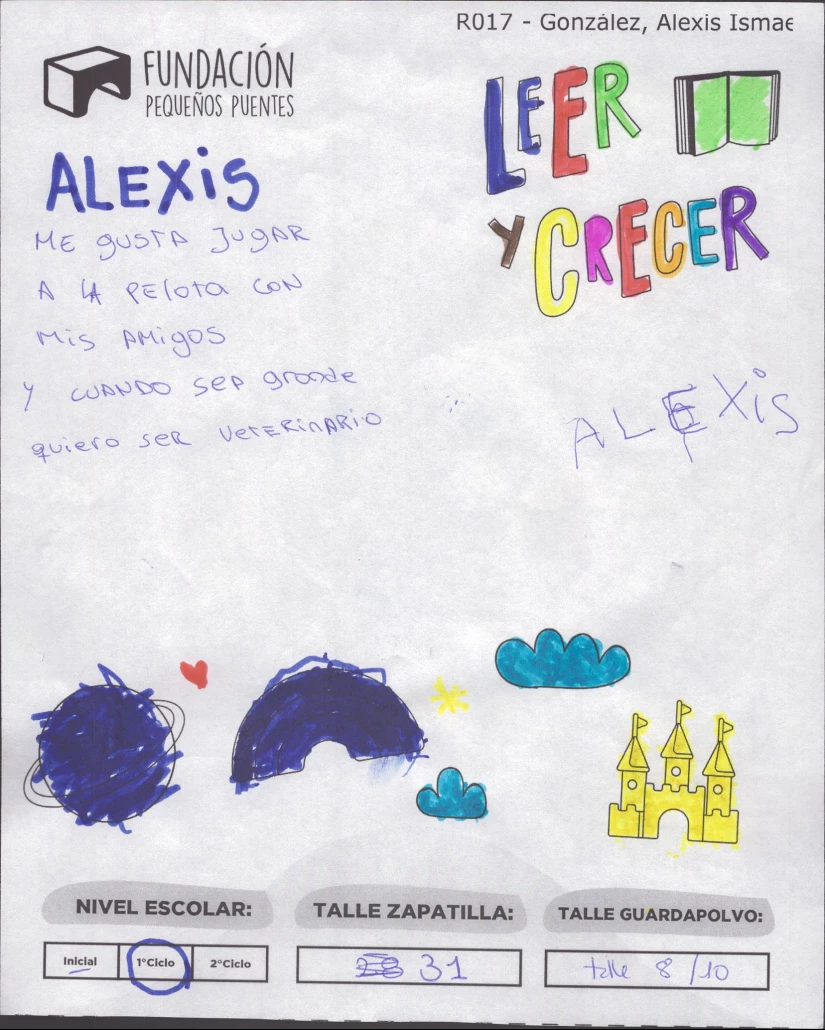 R017 - González, Alexis Ismae
FUNDACIÓN
PEQUEÑOS PUENTES
LEER
Y CRECER
ALEXiS
ME gUSTA JUGAR
A LA PElota CON
Mis AMigOS
Y CUANDO SEA grande
quiero SER VETERinARiO
ALEXiS
NIVEL ESCOLAR:
TALLE ZAPATILLA:
TALLE GUARDAPOLVO:
Inicial
1°Ciclo
2°Ciclo
31
talle 8/10